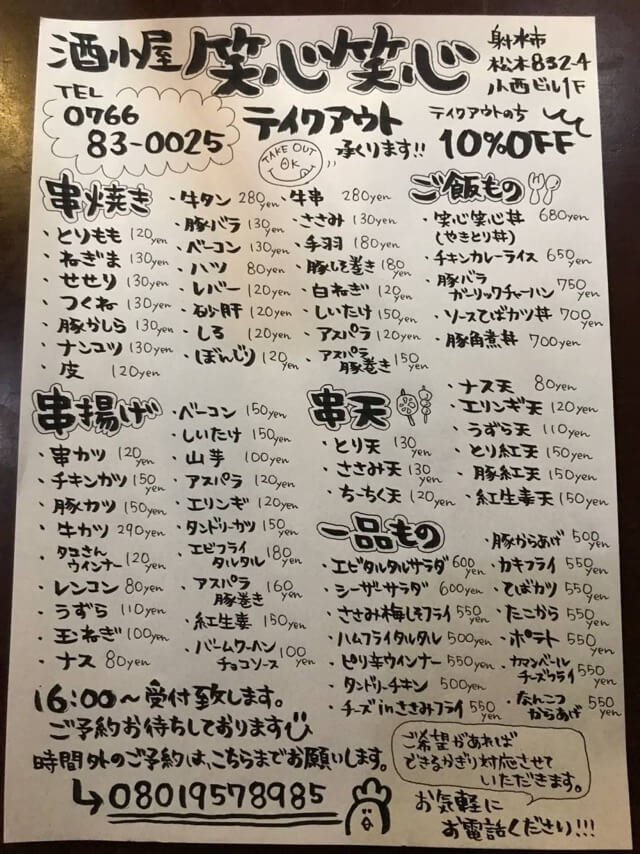 酒小屋 笑心笑心
射水市
松木832-4
小西ビル1F
TEL
0766
83-0025
テイクアウト
承ります!!
TAKE OUT
OK
テイクアウトのち
10%OFF
串焼き
・とりもも 120yen
・ねぎま 130yen
・せせり 130yen
・つくね 130yen
・豚かしら 130yen
・ナンコツ 130yen
・皮 120yen
・牛タン 280yen
・豚バラ 130yen
・ベーコン 130yen
・ハツ 80yen
・レバー 120yen
・砂肝 120yen
・しろ 120yen
・ぼんじり 120yen
・牛串 280yen
・ささみ 130yen
・手羽 180yen
・豚しそ巻き 180yen
・白ねぎ 120yen
・しいたけ 150yen
・アスパラ 120yen
・アスパラ
豚巻き 150yen
ご飯もの
・笑心笑心丼 680yen
(やきとり丼)
・チキンカレーライス 650yen
・豚バラ
ガーリックチャーハン 750yen
・ソースてばカツ丼 700yen
・豚角煮丼 700yen
串揚げ
・串カツ 120yen
・チキンカツ 150yen
・豚カツ 150yen
・牛カツ 290yen
・タコさん
ウインナー 120yen
・レンコン 80yen
・うずら 110yen
・玉ねぎ 100yen
・ナス 80yen
・ベーコン 150yen
・しいたけ 150yen
・山芋 100yen
・アスパラ 120yen
・エリンギ 120yen
・タンドリーカツ 150yen
・エビフライ
タルタル 180yen
・アスパラ
豚巻き 160yen
・紅生姜 150yen
・バームクーヘン
チョコソース 100yen
串天
・とり天 130yen
・ささみ天 130yen
・ちーちく天 120yen
・ナス天 80yen
・エリンギ天 120yen
・うずら天 110yen
・とり紅天 150yen
・豚紅天 150yen
・紅生姜天 150yen
一品もの
・エビタルタルサラダ 600yen
・シーザーサラダ 600yen
・ささみ梅しそフライ 550yen
・ハムフライタルタル 500yen
・ピリ辛ウインナー 550yen
・タンドリーチキン 500yen
・チーズinささみフライ 550yen
・豚からあげ 500yen
・カキフライ 550yen
・てばカツ 550yen
・たこから 550yen
・ポテト 550yen
・カマンベール
チーズフライ 550yen
・なんこつ
からあげ 550yen
16:00〜受付致します。
ご予約お待ちしております
時間外のご予約は、こちらまでお願いします。
08019578985
ご希望があれば
できるかぎり対応させて
いただきます。
お気軽に
お電話ください!!!